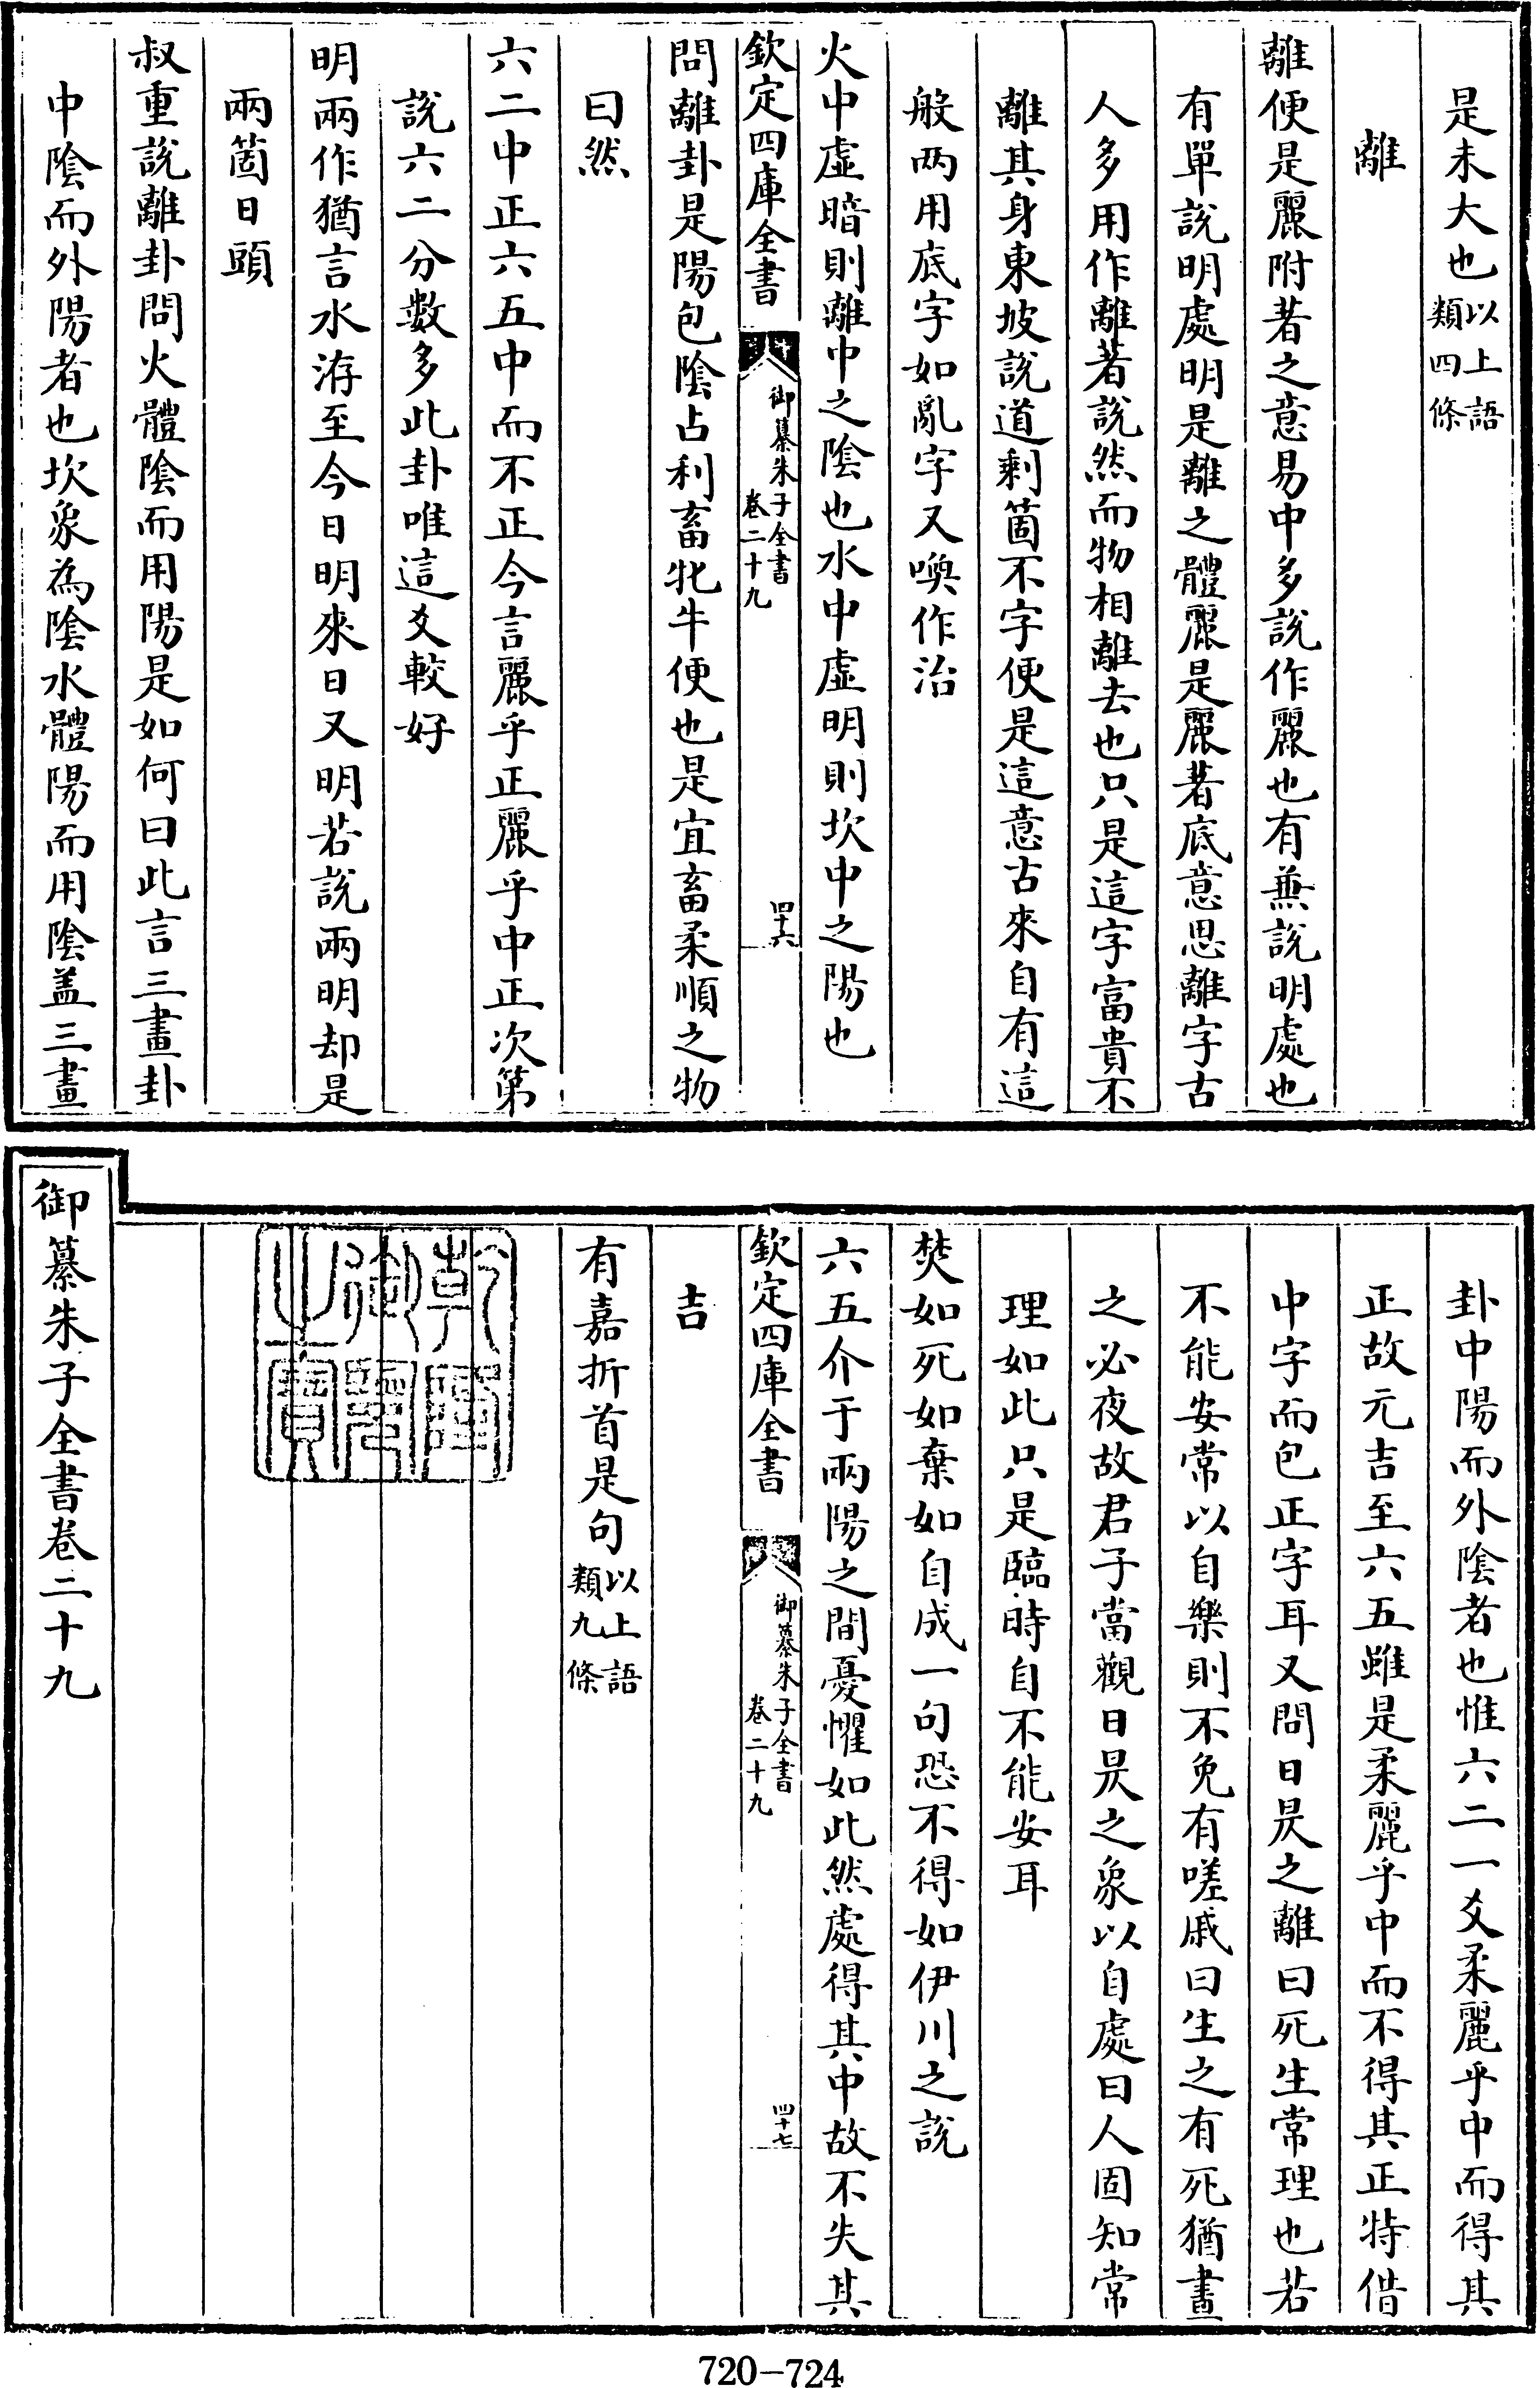 是未大也以上語
類四條
離
離便是麗附著之意易中多説作麗也有兼説明處也
有單説明處明是離之體麗是麗著底意思離字古
人多用作離著説然而物相離去也只是這字富貴不
離其身東坡説道剩箇不字便是這意古來自有這
般两用底字如亂字又喚作治
火中虛暗則離中之陰也水中虛明則坎中之陽也
欽定四庫全書
御纂朱子全書
卷二十九
四十六
問離卦是陽包陰占利畜牝牛便也是宜畜柔順之物
曰然
六二中正六五中而不正今言麗乎正麗乎中正次第
説六二分數多此卦唯這爻較好
明兩作猶言水洊至今日明來日又明若説兩明却是
兩箇日頭
叔重説離卦問火體陰而用陽是如何曰此言三畫卦
中陰而外陽者也坎象為陰水體陽而用陰盖三畫
卦中陽而外陰者也惟六二一爻柔麗乎中而得其
正故元吉至六五雖是柔麗乎中而不得其正特借
中字而包正字耳又問日昃之離曰死生常理也若
不能安常以自樂則不免有嗟戚曰生之有死猶晝
之必夜故君子當觀日昃之象以自處曰人固知常
理如此只是臨時自不能安耳
焚如死如棄如自成一句恐不得如伊川之説
六五介于兩陽之間憂懼如此然處得其中故不失其
欽定四庫全書
御纂朱子全書
卷二十九
四十七
吉
有嘉折首是句以上語
類九條
乾隆
御覽
之寶
御纂朱子全書卷二十九
720-724